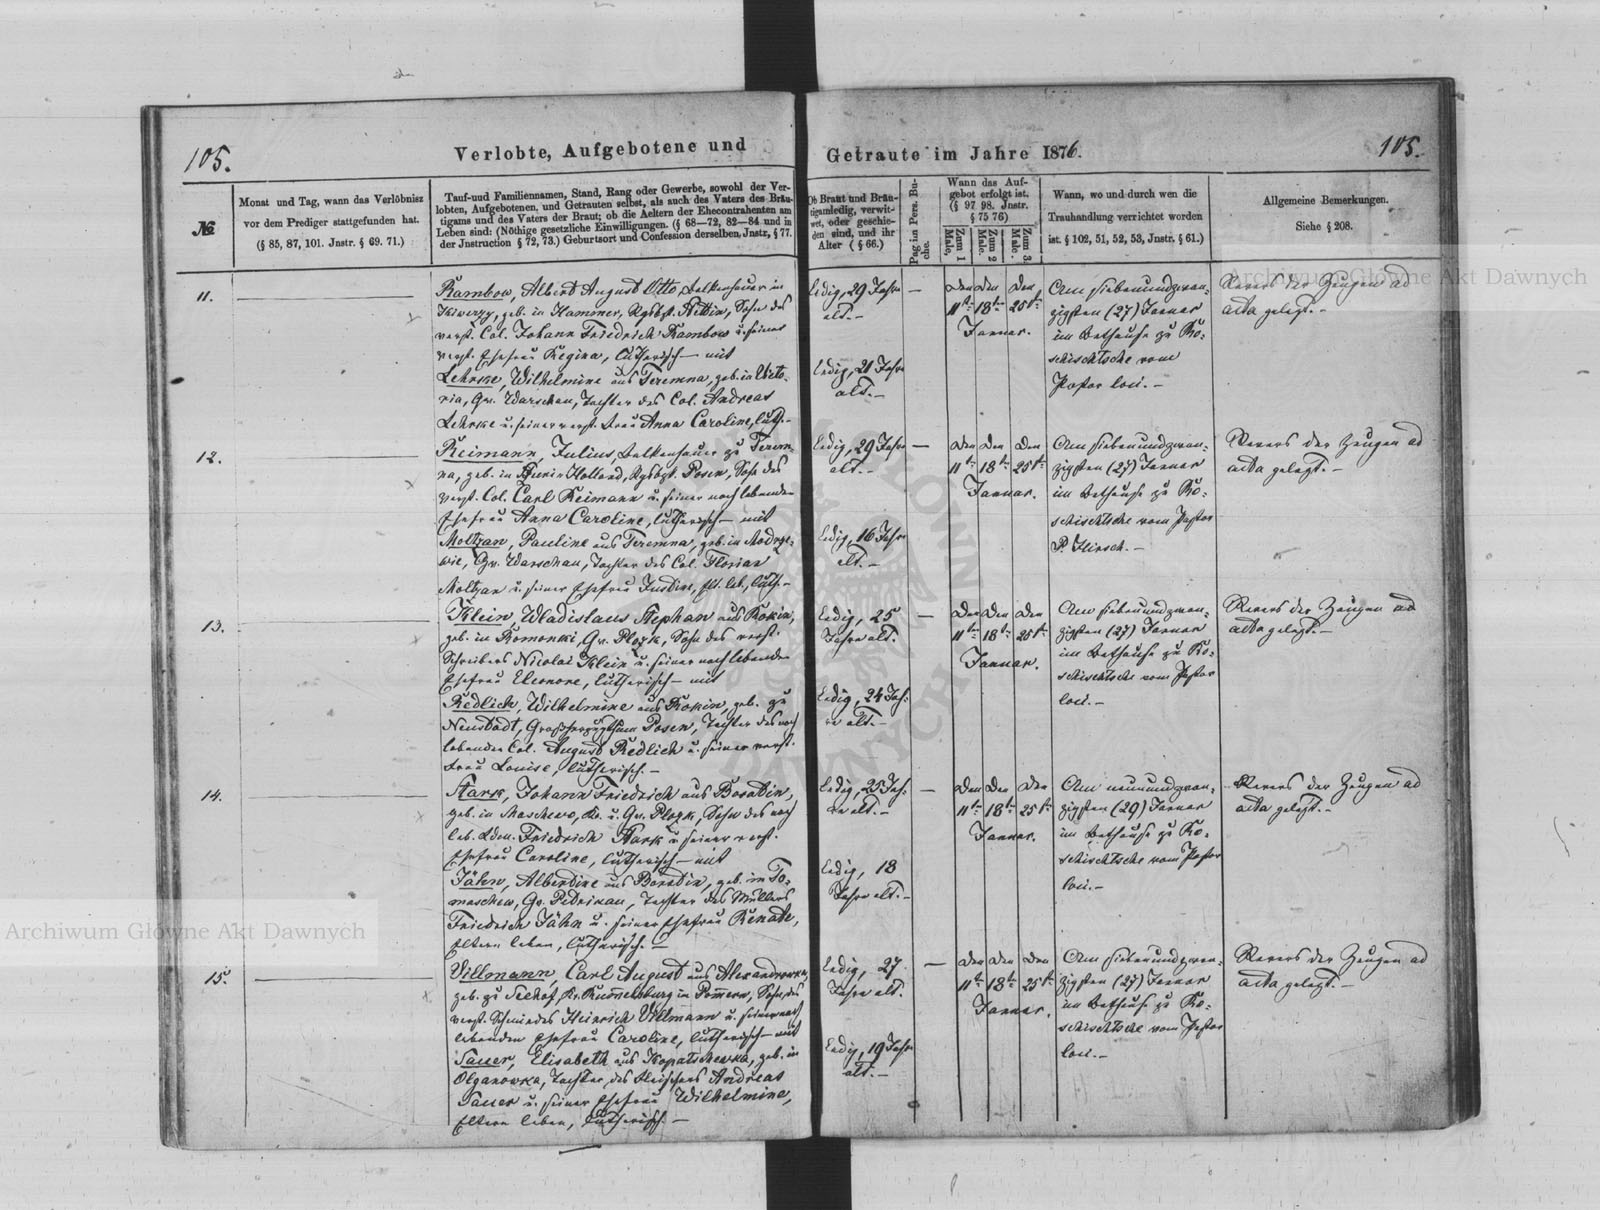 105.
Verlobte, Aufgebotene und
Getraute im Jahre 1876.
105.
№
Monat und Tag, wann das Verlöbniss
vor dem Prediger stattgefunden hat.
(§ 85, 87, 101. Jnstr. § 69. 71.)
Tauf-und Familiennamen, Stand, Rang oder Gewerbe, sowohl der Ver-
lobten, Aufgebotenen, und Getrauten selbst, als auch des Vaters des Bräu-
tigams und des Vaters der Braut; ob die Aeltern der Ehecontrahenten am
Leben sind: (Nöthige gesetzliche Einwilligungen. (§ 68—72, 82—84 und in
der Jnstruction § 72, 73.) Geburtsort und Confession derselben, Jnstr, § 77.
Ob Braut und Bräu-
tigam ledig, verwit-
wet, oder geschie-
den sind, und ihr
Alter (§ 66.)
Pag im Pers. Bu-
che.
Wann das Auf-
gebot erfolgt ist.
(§ 97 98. Jnstr.
§ 75 76)
Zum 1 Male.
Zum 2 Male.
Zum 3 Male.
Wann, wo und durch wen die
Trauhandlung verrichtet worden
ist. § 102, 51, 52, 53, Jnstr. § 61.)
Allgemeine Bemerkungen.
Siehe § 208.
11.
Rambow, Albert August Otto, Balkenhauer in
Kiwerzy, geb. in Hammer, Rgsbzk. Stettin, Sohn des
verst. Col. Johann Friedrich Rambow u. seiner
verst. Ehefrau Regina, lutherisch — mit
Lehrke, Wilhelmine aus Teremna, geb. in Victo-
ria, Gv. Warschau, Tochter des Col. Andreas
Lehrke u. seiner verst. Frau Anna Caroline, luth. —
Ledig, 29 Jahre
alt. —
Ledig, 21 Jahre
alt. —
Den Den Den
11t. 18t. 25t.
Januar.
Am siebenundzwan-
zigsten (27) Januar
im Bethause zu Ro-
schischtsche vom
Pastor
Revers der Zeugen ad
acta gelegt. —
12.
Reimann, Julius, Balkenhauer zu Terem-
na, geb. in Holland, Rgsbzk. Posen, Sohn des
verst. Col. Carl Reimann u. seiner noch lebenden
Ehefrau Anna Caroline, lutherisch — mit
Moltzan, Pauline aus Teremna, geb. in Modrze-
wie, Gv. Warschau, Tochter des Col. Florian
Moltzan u. seiner Ehefrau Justine, Elt. leb., luth. —
Ledig, 29 Jahre
alt. —
Ledig, 16 Jahre
alt. —
Den Den Den
11t. 18t. 25t.
Januar.
Am siebenundzwan-
zigsten (27) Januar
im Bethause zu Ro-
schischtsche vom Pastor
P. Hirsch. —
Revers der Zeugen ad
acta gelegt. —
13.
Klein, Wladislaus Stephan aus Rokin,
geb. in Romonki, Gv. Plozk, Sohn des verst.
Schreibers Nicolai Klein u. seiner noch lebenden
Ehefrau Eleonore, lutherisch — mit
Redlich, Wilhelmine aus Rokin, geb. zu
Neustadt, Grossherzogthum Posen, Tochter des noch
lebenden Col. August Redlich u. seiner verst.
Frau Louise, lutherisch. —
Ledig, 25
Jahre alt.
Ledig, 24 Jah-
re alt. —
Den Den Den
11t. 18t. 25t.
Januar.
Am siebenundzwan-
zigsten (27) Januar
im Bethause zu Ro-
schischtsche vom Pastor
Revers der Zeugen ad
acta gelegt. —
14.
Stark, Johann Friedrich aus Boratin,
geb. in Maschewo, Kr. u. Gv. Plozk, Sohn des noch
leb. Friedrich Stark u. seiner verst.
Ehefrau Caroline, lutherisch — mit
Jähn, Albertine aus Boratin, geb. im To-
maschew, Gv. Petrikau, Tochter des Müllers
Friedrich Jähn u. seiner Ehefrau Renate,
Eltern leben, lutherisch. —
Ledig, 23 Jah-
re alt. —
Ledig, 18
Jahre alt. —
Den Den Den
11t. 18t. 25t.
Januar.
Am neunundzwan-
zigsten (29) Januar
im Bethause zu Ro-
schischtsche vom Pastor
Revers der Zeugen ad
acta gelegt. —
15.
Villmann, Carl August aus Alexandrowka,
geb. zu Seehof, Kr. Rummelsburg in Pommern, Sohn des
verst. Schmiedes Heinrich Villmann u. seiner noch
lebenden Ehefrau Caroline, lutherisch — mit
Sauer, Elisabeth aus Kopatschewka, geb. in
Olganowka, Tochter des Fleischers Andreas
Sauer u. seiner Ehefrau Wilhelmine,
Eltern leben, lutherisch. —
Ledig, 27
Jahre alt.
Ledig, 19 Jahre
alt. —
Den Den Den
11t. 18t. 25t.
Januar.
Am siebenundzwan-
zigsten (27) Januar
im Bethause zu Ro-
schischtsche vom Pastor
Revers der Zeugen ad
acta gelegt. —
Archiwum Główne Akt Dawnych
Archiwum Główne Akt Dawnych